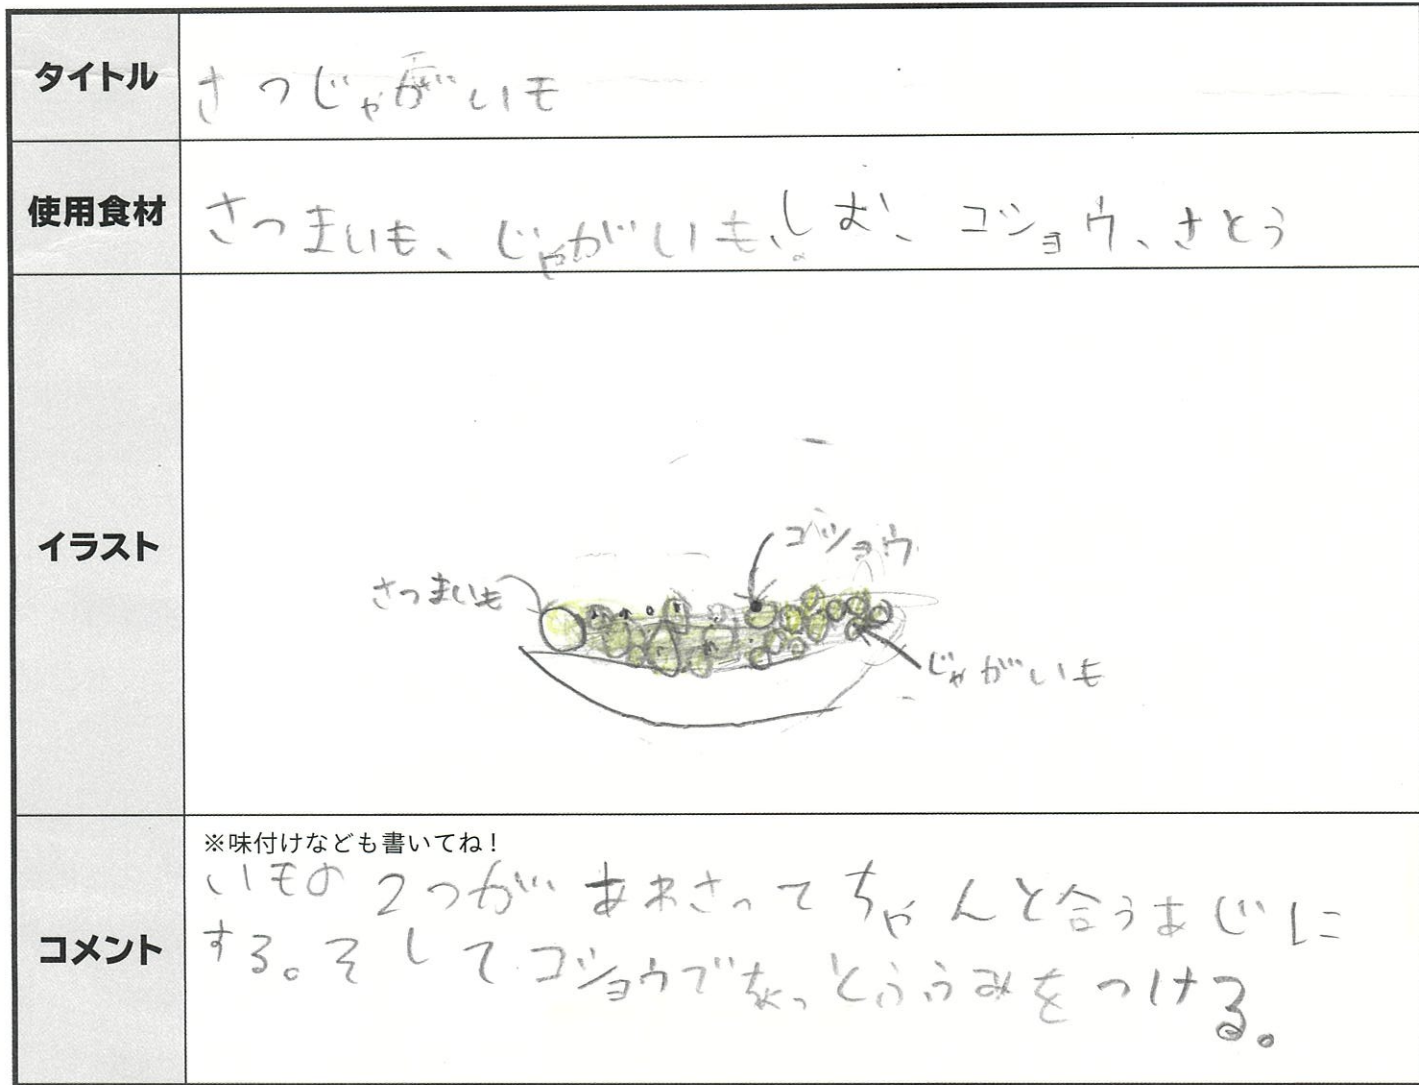 タイトル
さつじゃがいも
使用食材
さつまいも、じゃがいも、しお、コショウ、さとう
イラスト
さつまいも
コショウ
じゃがいも
コメント
※味付けなども書いてね！
いもの2つがあわさってちゃんと合うあじに
する。そしてコショウでちょっとふうみをつける。